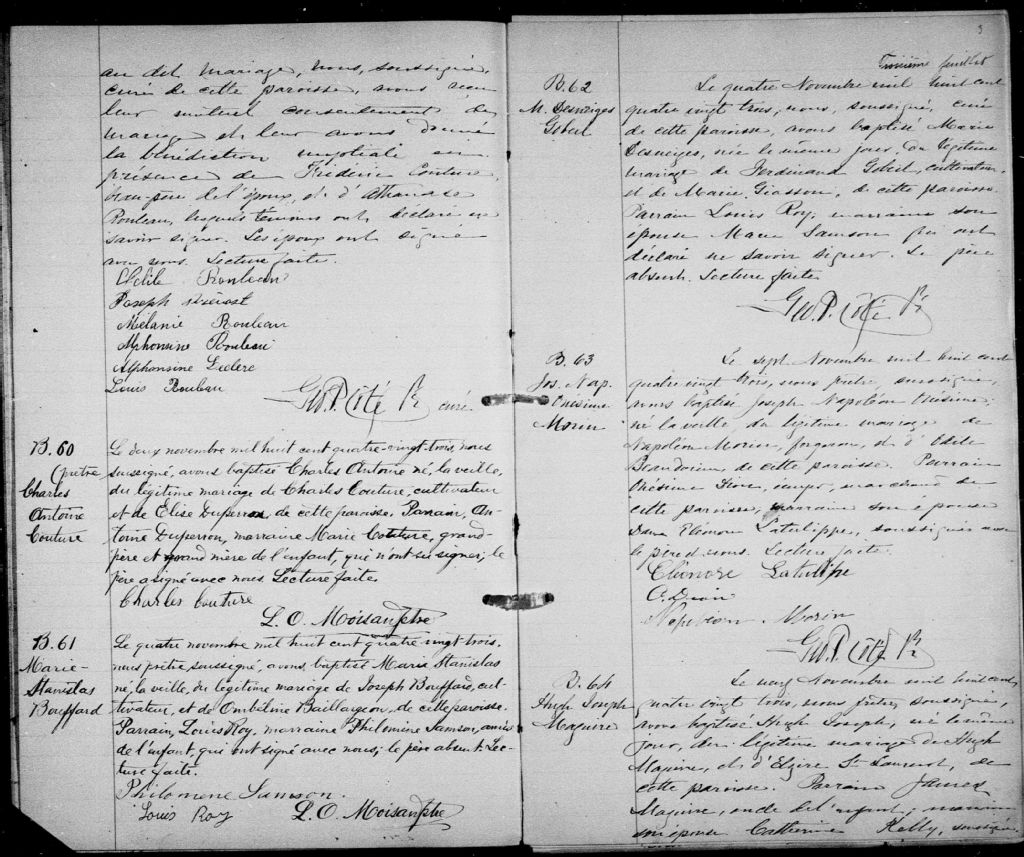 au dit mariage, nous, soussigné,
curé de cette paroisse, avons reçu
leur mutuel consentement de
mariage et leur avons donné
la bénédiction nuptiale en
présence de Frédéric Couture,
beau-père de l'époux, et d'Athanase
Rouleau, lesquels témoins ont déclaré ne
savoir signer. Les époux ont signé
avec nous. Lecture faite.
Rouleau
Joseph
Mélanie Rouleau
Alphonsine Rouleau
Alphonsine Leclerc
Louis Rouleau
Geo. P. Côté Ptr curé
B. 60
(prêtre
Charles
Antoine
Couture
Le deux novembre mil huit cent quatre-vingt-trois, nous
soussigné, avons baptisé Charles Antoine né, la veille,
du légitime mariage de Charles Couture, cultivateur
et de Elise Duperron, de cette paroisse. Parrain, An-
toine Duperron, marraine Marie Couture, grand-
père et grand mère de l'enfant, qui n'ont su signer; le
père a signé avec nous Lecture faite.
Charles Couture
L. O. Moisan Ptre
B. 61
Marie-
Stanislas
Bouffard
Le quatre novembre mil huit cent quatre vingt trois,
nous prêtre soussigné, avons baptisé Marie Stanislas
né, la veille, du légitime mariage de Joseph Bouffard, cul-
tivateur, et de Ombéline Baillargeon, de cette paroisse.
Parrain, Louis Roy, marraine Philomène Samson, amis
de l'enfant, qui ont signé avec nous; le père absent. Lec-
ture faite.
Philomene Samson
Louis Roy L. O. Moisan Ptre
3
Troisième feuillet
B. 62
M. Desneiges
Gobeil
Le quatre Novembre mil huit cent
quatre vingt trois, nous, soussigné, curé
de cette paroisse, avons baptisé Marie
Desneiges, née le même jour, du légitime
mariage de Ferdinand Gobeil, cultivateur,
et de Marie Giasson, de cette paroisse.
Parrain Louis Roy, marraine son
épouse Marie Samson qui ont
déclaré ne savoir signer. Le père
absent. Lecture faite
Geo. P. Côté Ptr
B. 63
Jos. Nap.
Onésime
Morin
Le sept Novembre mil huit cent
quatre vingt trois, nous prêtre, soussigné,
avons baptisé Joseph Napoléon Onésime,
né la veille, du légitime mariage de
Napoléon Morin, forgeron, et d'Odile
Beaudoin, de cette paroisse. Parrain
Onésime marchand de
cette paroisse, marraine son épouse
Dame Eléonore Latulippe, soussignés avec
le père et nous. Lecture faite.
Eléonore Latulipe
Napoléon Morin
Geo. P. Côté Ptr
B. 64
Hugh Joseph
Maguire
Le neuf Novembre mil huit cent
quatre vingt trois, nous prêtre, soussigné,
avons baptisé Hugh Joseph, né le même
jour, du légitime mariage de Hugh
Maguire, et d'Elzire St Laurent, de
cette paroisse. Parrain James
Maguire, oncle de l'enfant; marraine
son épouse Catherine Kelly, soussignés